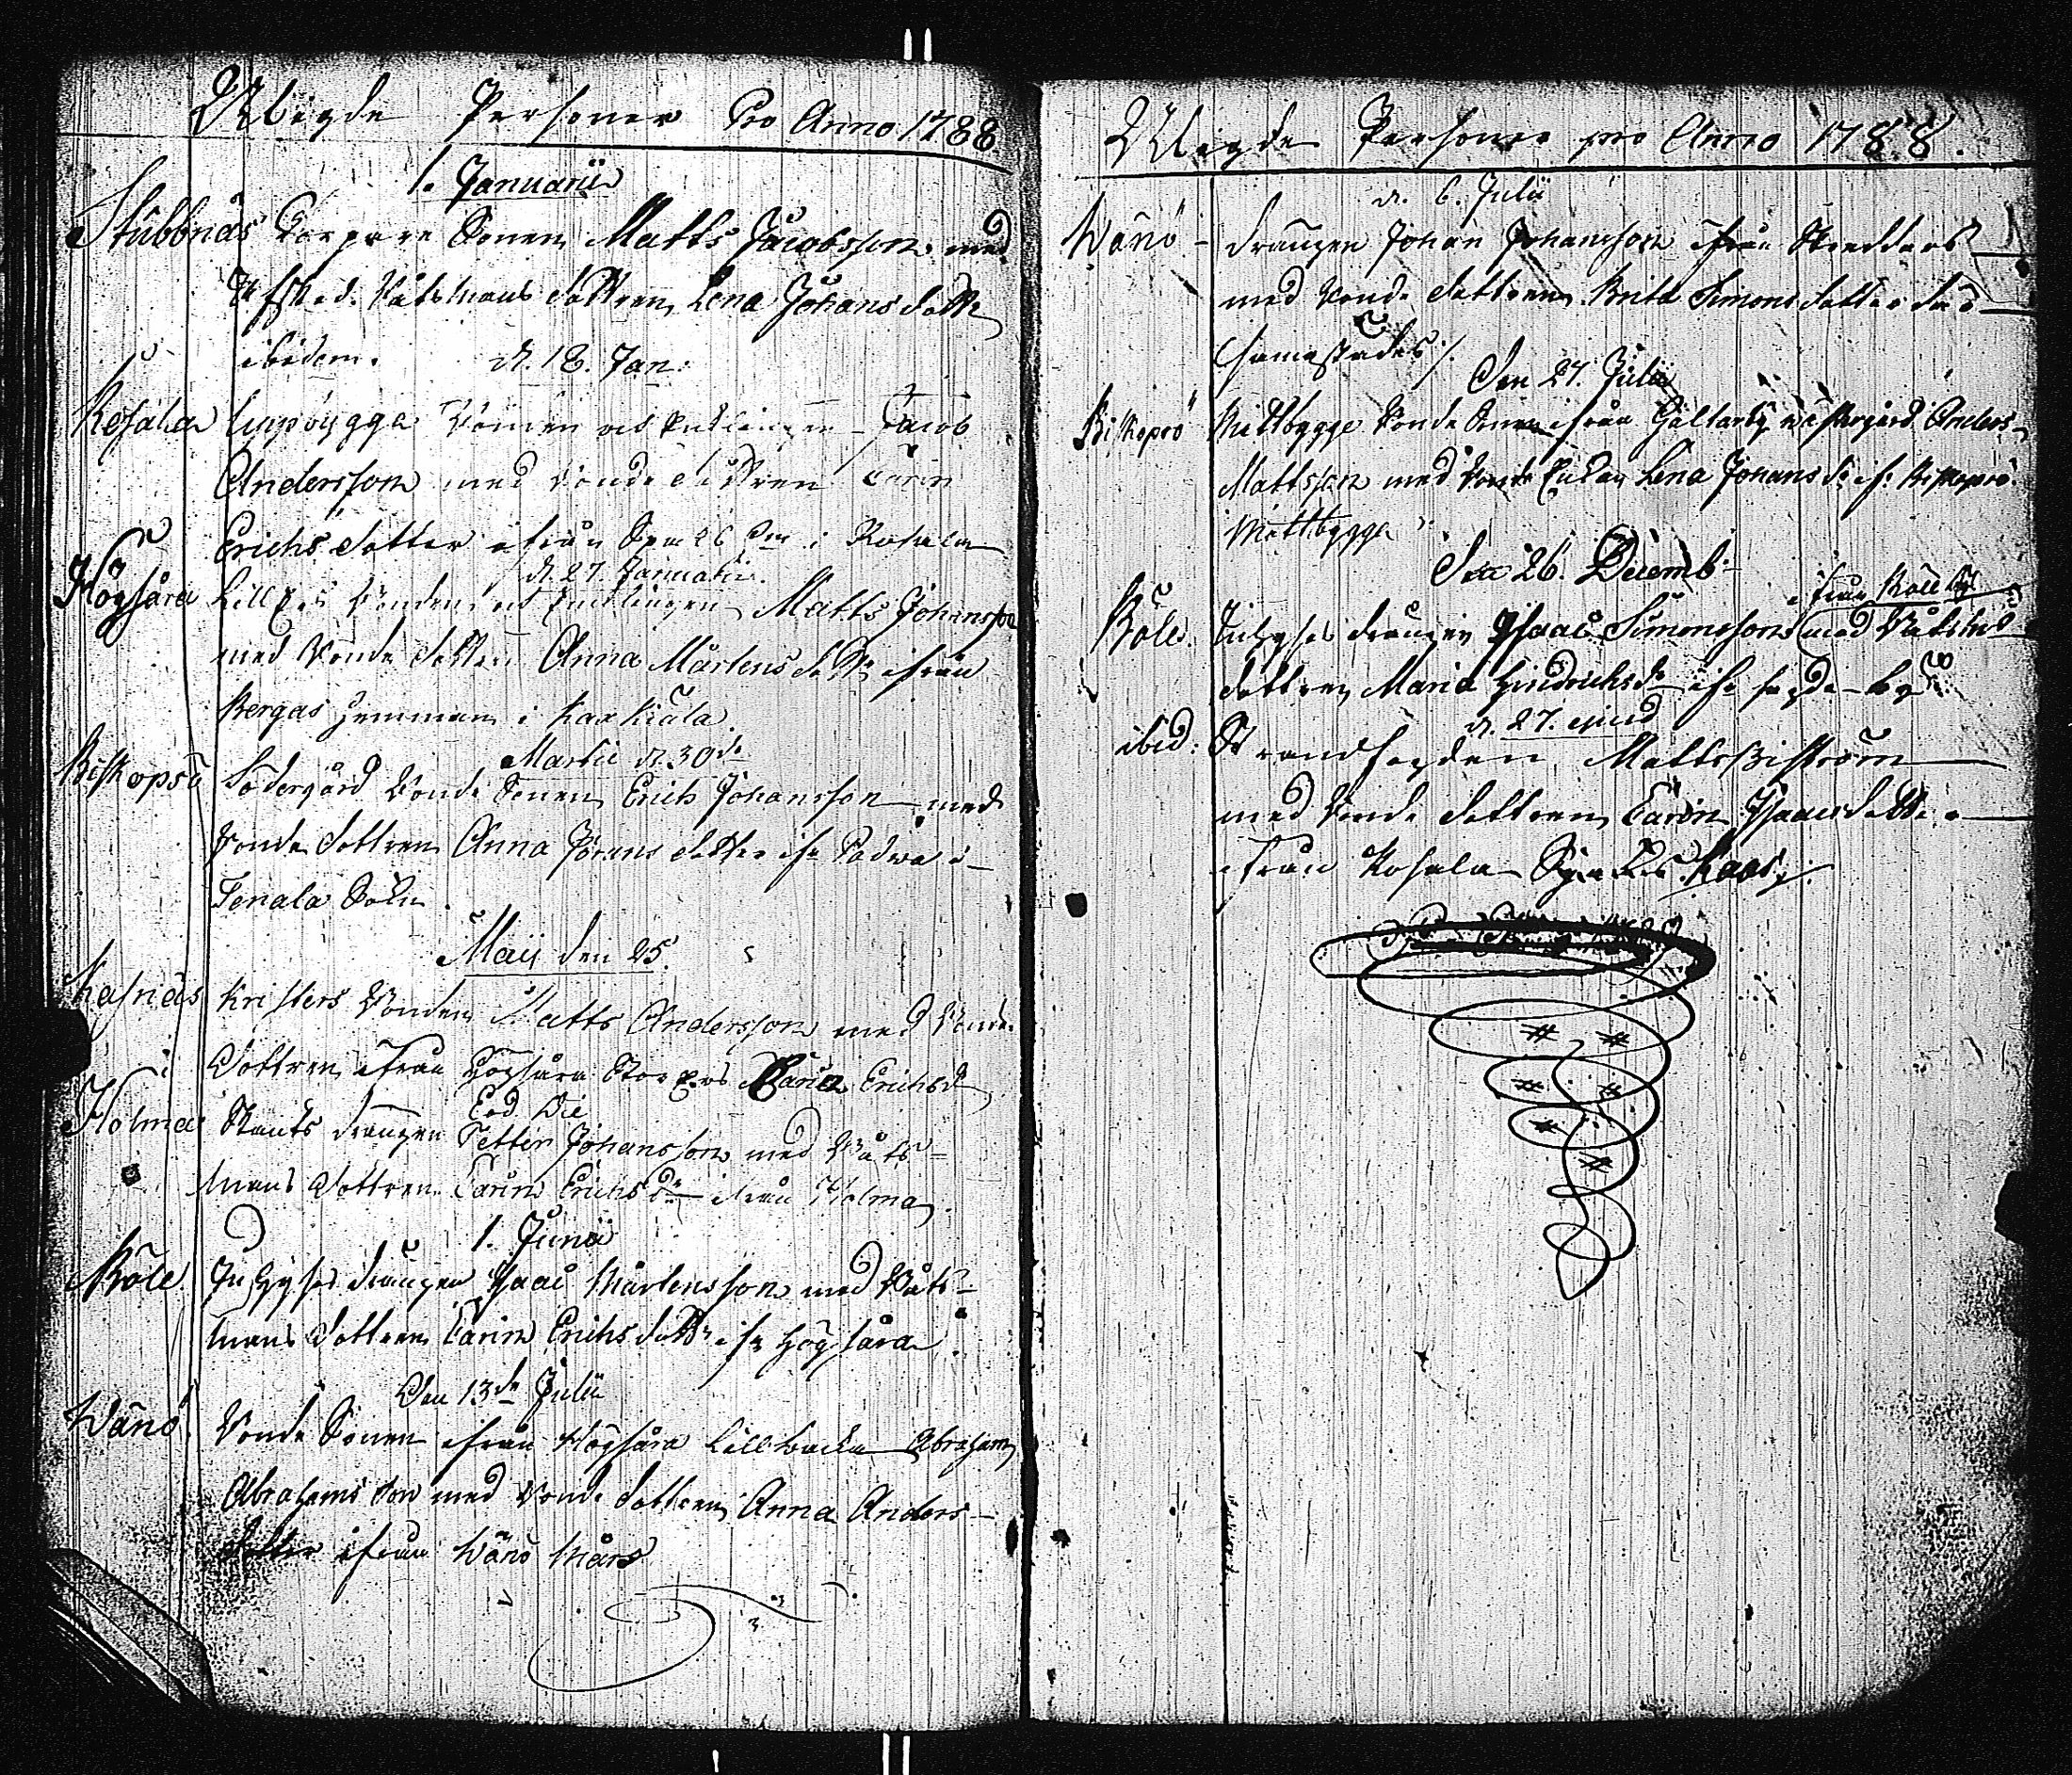 Wigde Personer Pro Anno 1788
1. Januarii
Stubbnäs Torpare Sonen Matts Jacobsson med
Afsked. Båtsmans dottren Lena Johans dottr
ibidem. d. 18. Jan:
Rosala Uppbygge Bonden och Enklingen Jacob
Andersson med Bonde dottren Carin
Erichs dotter ifrån i Rosala
d. 27. Januarii.
Högsåra Lillpes Bonden och Enklingen Matts Johansson
med Bonde dottren Anna Mårtens dottr ifrån
Bergas hemman i Karkiala
Martii d. 30de
Biskopsö Södergård Bonde Sonen Erich Johansson med
Bonde dottren Anna Jörans dotter ifr Padwa i
Tenala Sokn
Maij den 25.
Kasnäs Kristers Bonden Matts Andersson med Bonde
Dottren ifrån Högsåra Storpes Maria Erichsd
Eod. Die
Holma drängen Petter Johansson med Båts=
mans Dottren Carin Erichs dr ifrån Holma
1. Junii
Böle Inhyses drängen Isaac Mårtensson med Båts=
mans dottren Carin Erichs dottr ifr Högsåra
Den 13de Julii
Wänö Bonde Sonen ifrån Högsåra Lillbacka Abraham
Abrahams son med Bonde dottren Anna Anders-
dotter ifrån Wänö Mårs
Wigde Personer pro Anno 1788.
d. 6. Julii
Wänö - drängen Johan Johansson ifrån
med Bonde dottren Brita Simons dotter
samastädes
Den 27. Julii
Biskopsö Mittbygge Bonde Sonen ifrån Galtarby Anders
Mattsson med Enkan Lena Johans dr ifr Biskopsö
Mittbygge
Den 26. Decemb:
ifrån Böle
Böle. Inhyses drängen Isaac Simonsson med Båtsms
dottren Maria Hindrichs dr ifr sagde by
d. 27. ejusd
ibid: Strandfogden Matts Biström
med Bonde dottren Carin Isaacs dotter
ifrån Rosala